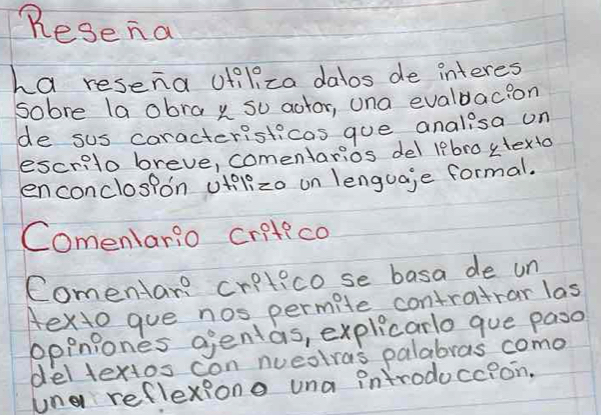 Reseña
La reseña utiliza datos de interes
sobre la obra y su autor, una evaluacion
de sus caracteristicas que analisa un
escrito breve, comentarios del libro y texto
en conclosión utiliza un lenguaje formal.
Comentario critico
Comentari critico se basa de un
texto que nos permite contratrar las
opiniones ajentas, explicarlo que paso
del textos con nuestras palabras como
una reflexion o una introduccion.